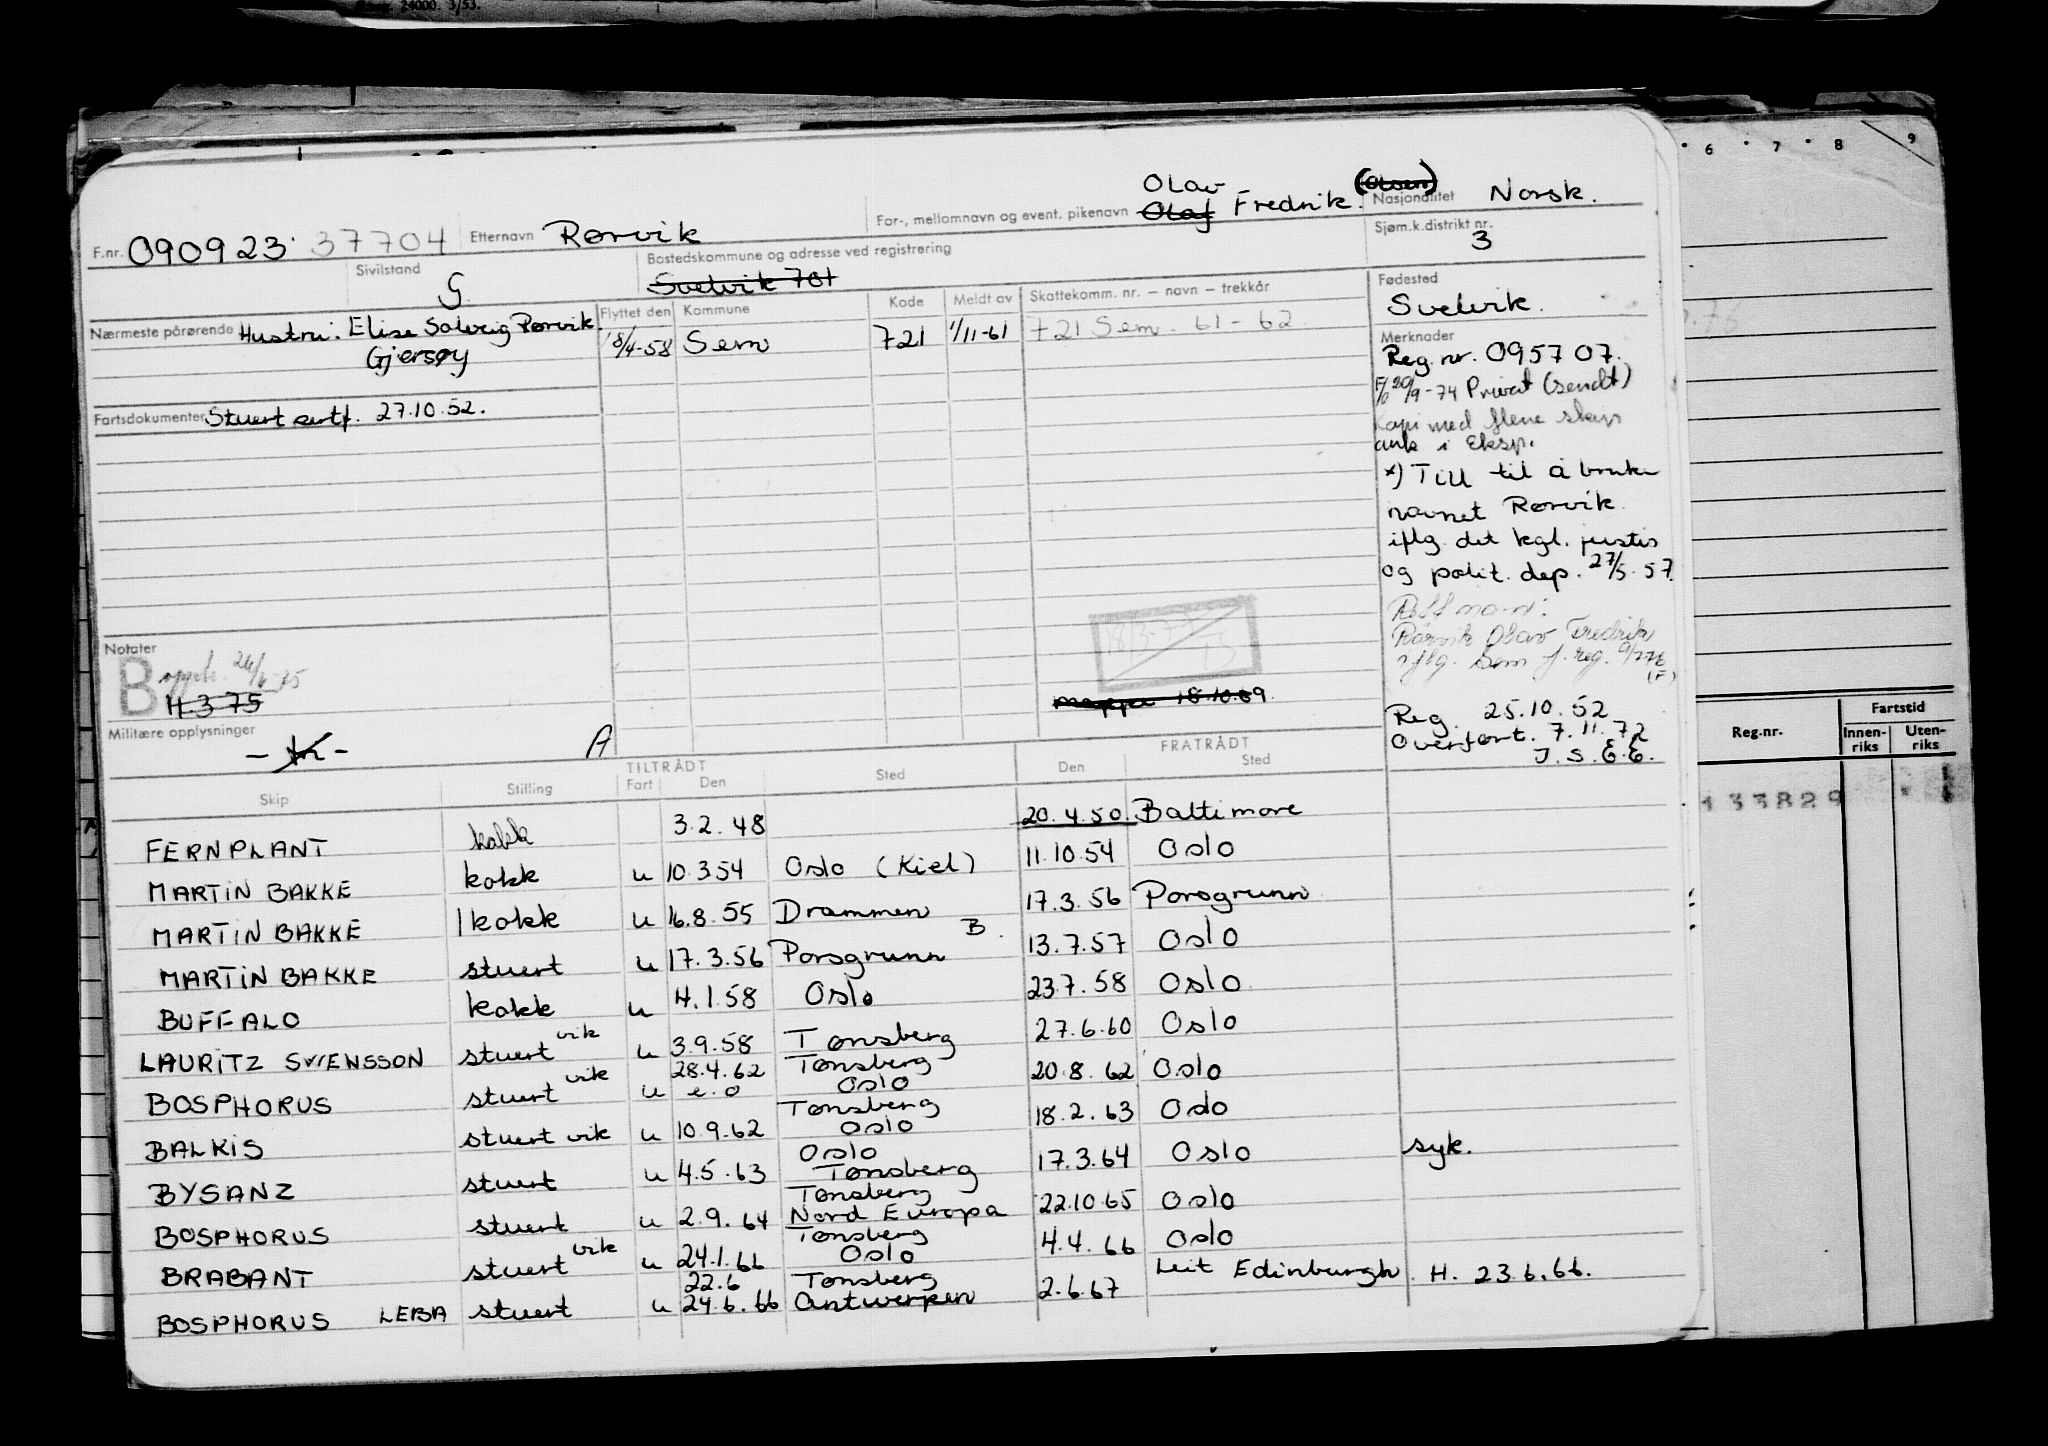 24000. 3/53.
6 7 8 9
F.nr. 090923 37704 Etternavn Rørvik For-, mellomnavn og event. pikenavn Olav Olaf Fredrik. (Olsen) Nasjonalitet Norsk.
Sivilstand G. Bostedskommune og adresse ved registrering Svelvik 701 Sjøm.k.distrikt nr. 3
Nærmeste pårørende Hustru: Elise Solveig Rørvik.
Gjersøy
Flyttet den Kommune Kode Meldt av Skattekomm. nr. — navn — trekkår
18/4-58 Sem 721 1/11-61 721 Sem. 61-62
Fødested
Svelvik.
Merknader
Reg. nr. 095707.
20/9-74 Privat (sendt)
Kopi med flere skip
ank i Eksp.
x) Till til å bruke
navnet Rørvik
iflg. det kgl. justis
og polit. dep. 27/5-57.
Rørvik Olav Fredrik
iflg. Sem f. reg.
(F)
Reg. 25.10.52
Overført. 7.11.72
J.S.E.E.
Fartsdokumenter Stuert sertf. 27.10.52.
Notater
B
4.3.75
mappe 18.10.69.
Militære opplysninger
A
Reg.nr. Fartstid
Innen-riks Uten-riks
133829
TILTRÅDT FRATRÅDT
Skip Stilling Fart Den Sted Den Sted
FERNPLANT kokk 3.2.48 20.4.50. Baltimore
MARTIN BAKKE kokk u 10.3.54 Oslo (Kiel) 11.10.54 Oslo
MARTIN BAKKE 1 kokk u 16.8.55 Drammen 17.3.56 Porsgrunn
MARTIN BAKKE stuert u 17.3.56 Porsgrunn B. 13.7.57 Oslo
BUFFALO kokk u 4.1.58 Oslo 23.7.58 Oslo
LAURITZ SVENSSON stuert vik u 3.9.58 Tønsberg 27.6.60 Oslo
BOSPHORUS stuert vik u 28.4.62 e.o Tønsberg Oslo 20.8.62 Oslo
BALKIS stuert vik u 10.9.62 Tønsberg Oslo 18.2.63 Oslo
BYSANZ stuert u 4.5.63 Oslo Tønsberg 17.3.64 Oslo syk.
BOSPHORUS stuert u 2.9.64 Tønsberg Nord Europa 22.10.65 Oslo
BRABANT stuert vik u 24.1.66 Tønsberg Oslo 4.4.66 Oslo
BOSPHORUS LEBA stuert u 22.6 24.6.66 Tønsberg Antwerpen 2.6.67 Leit Edinburgh H. 23.6.66.